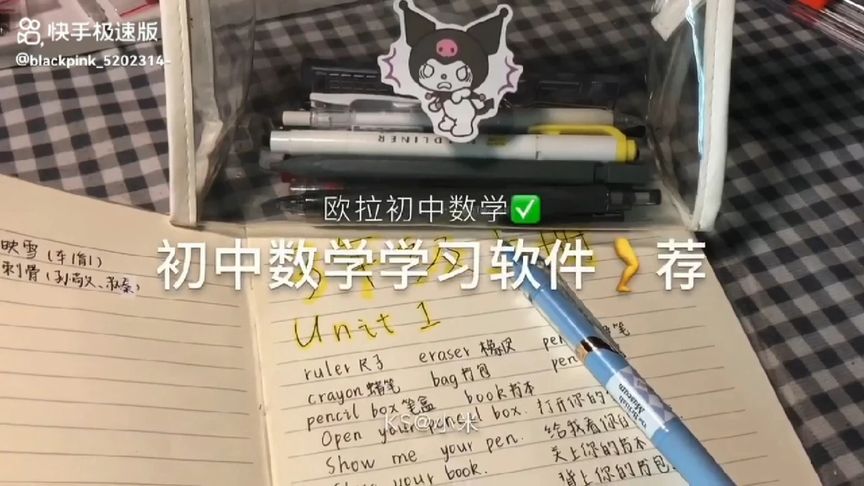 快手极速版
@blackpink_5202314-
欧拉初中数学✅
初中数学学习软件🦵荐
映雪(车胤)
刺骨(孙敬、苏秦)
Unit 1
ruler 尺子 eraser 橡皮
crayon 蜡笔 bag 书包
pencil box 笔盒 book 书本
Open your pencil box. 打开你的
KS@小米
Show me your pen. 给我看你的
your book. 关上你的书本
背上你的书包